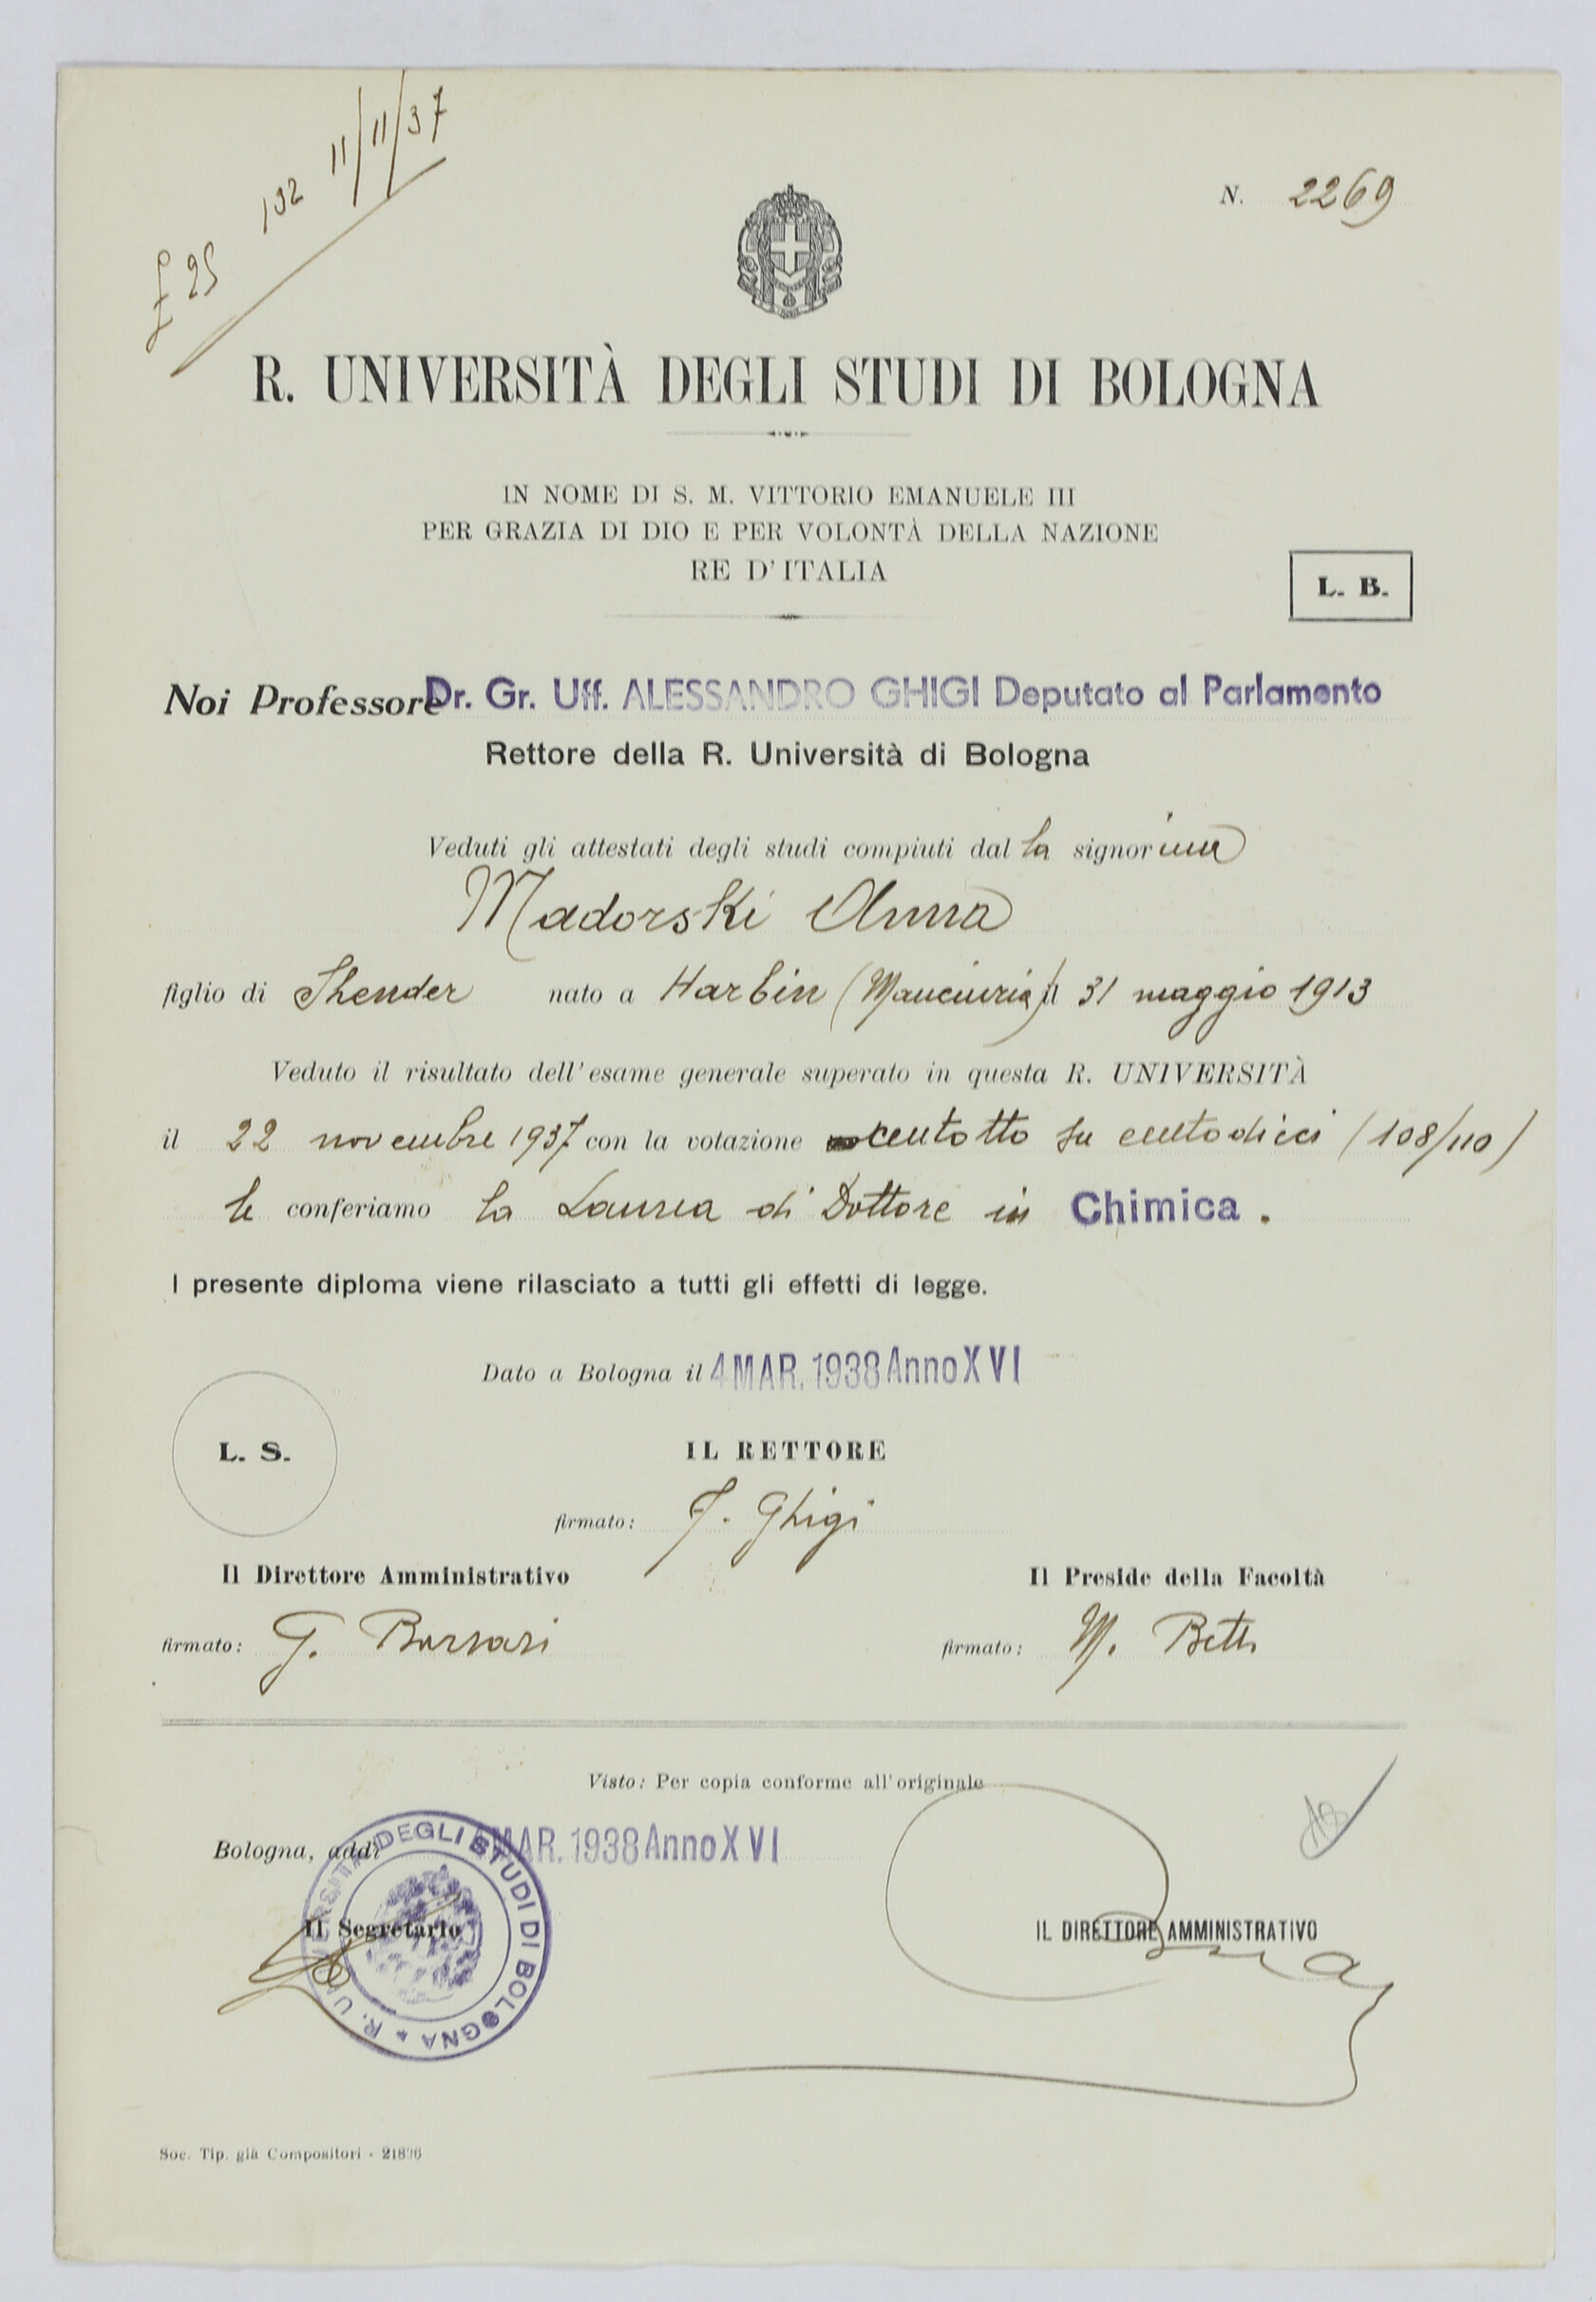 £ 25 132 11/11/37
N. 2269
R. UNIVERSITÀ DEGLI STUDI DI BOLOGNA
IN NOME DI S. M. VITTORIO EMANUELE III
PER GRAZIA DI DIO E PER VOLONTÀ DELLA NAZIONE
RE D'ITALIA
L. B.
Noi Professore Dr. Gr. Uff. ALESSANDRO GHIGI Deputato al Parlamento
Rettore della R. Università di Bologna
Veduti gli attestati degli studi compiuti dal la signorina
Madorski Anna
figlio di Shender nato a Harbin (Manciuria) il 31 maggio 1913
Veduto il risultato dell'esame generale superato in questa R. UNIVERSITÀ
il 22 novembre 1937 con la votazione centotto su centodieci (108/110)
le conferiamo la Laurea di Dottore in Chimica.
I presente diploma viene rilasciato a tutti gli effetti di legge.
Dato a Bologna il 4 MAR. 1938 Anno XVI
L. S.
IL RETTORE
firmato: f. Ghigi
Il Direttore Amministrativo Il Preside della Facoltà
firmato: G. Borsari firmato: M. Betti
Visto: Per copia conforme all'originale
Bologna, addì MAR. 1938 Anno XVI
R. UNIVERSITÀ DEGLI STUDI DI BOLOGNA
Il Segretario
IL DIRETTORE AMMINISTRATIVO
Soc. Tip. già Compositori - 21836